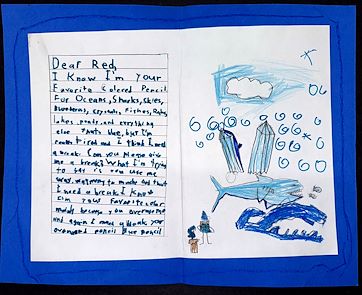 Dear Red,
I Know I'm Your
Favorite Colored Pencil
For Oceans, Sharks, Skies,
Blueberries, crystals, Fishes, Rain,
lakes, ponds, and everything
else thats blue, but I'm
tired and I think I need
a break. Can you please give
me a break? What I'm trying
to say is you use me
way, way to much and that
I need a break. I know
I'm your favorite color
because you overuse me
and again I
overused pencil Blue Pencil